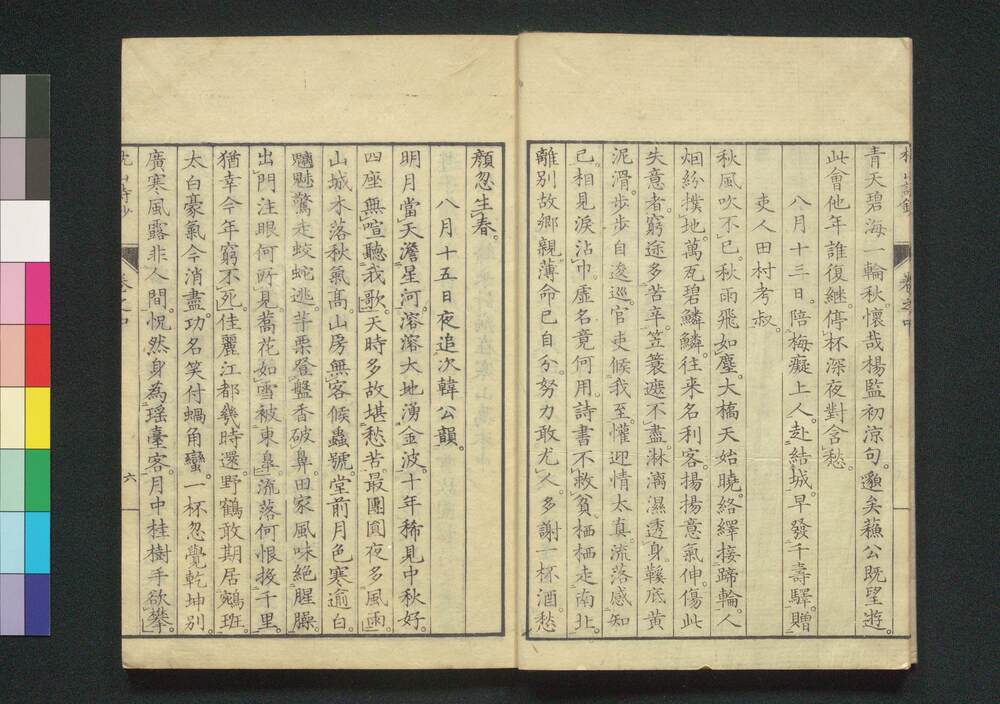 青天碧海一輪秋。懷哉楊監初涼句。邈矣蘓公既望遊。
此會他年誰復繼。停杯深夜對含愁。
八月十三日。陪梅癡上人。赴結城。早發千壽驛。贈
吏人田村考叔。
秋風吹不已。秋雨飛如塵。大橋天始曉。絡繹接蹄輪。人
烟紛撲地。萬瓦碧鱗鱗。往來名利客。揚揚意氣伸。傷此
失意者。窮途多苦辛。笠簑遮不盡。淋漓濕透身。鞵底黄
泥滑。步步自逡巡。官吏候我至。懽迎情太真。流落感知
己。相見淚沾巾。虛名竟何用。詩書不救貧。栖栖走南北。
離別故鄉親。薄命已自分。努力敢尤人。多謝一杯酒。愁
顏忽生春。
八月十五日夜追次韓公韻。
明月當天澹星河。溶溶大地湧金波。十年稀見中秋好。
四座無喧聽我歌。天時多故堪愁苦。最團圓夜多風雨。
山城木落秋氣髙。山房無客候蟲號。堂前月色寒逾白。
魑魅驚走蛟蛇逃。芋栗登盤香破鼻。田家風味絶腥臊。
出門注眼何所見。蒿花如雪被東皋。流落何恨投千里。
猶幸今年窮不死。佳麗江都幾時還。野鶴敢期居鵷班。
太白豪氣今消盡。功名笑付蝸角蠻。一杯忽覺乾坤別。
廣寒風露非人間。怳然身為瑶臺客。月中桂樹手欲攀。
六